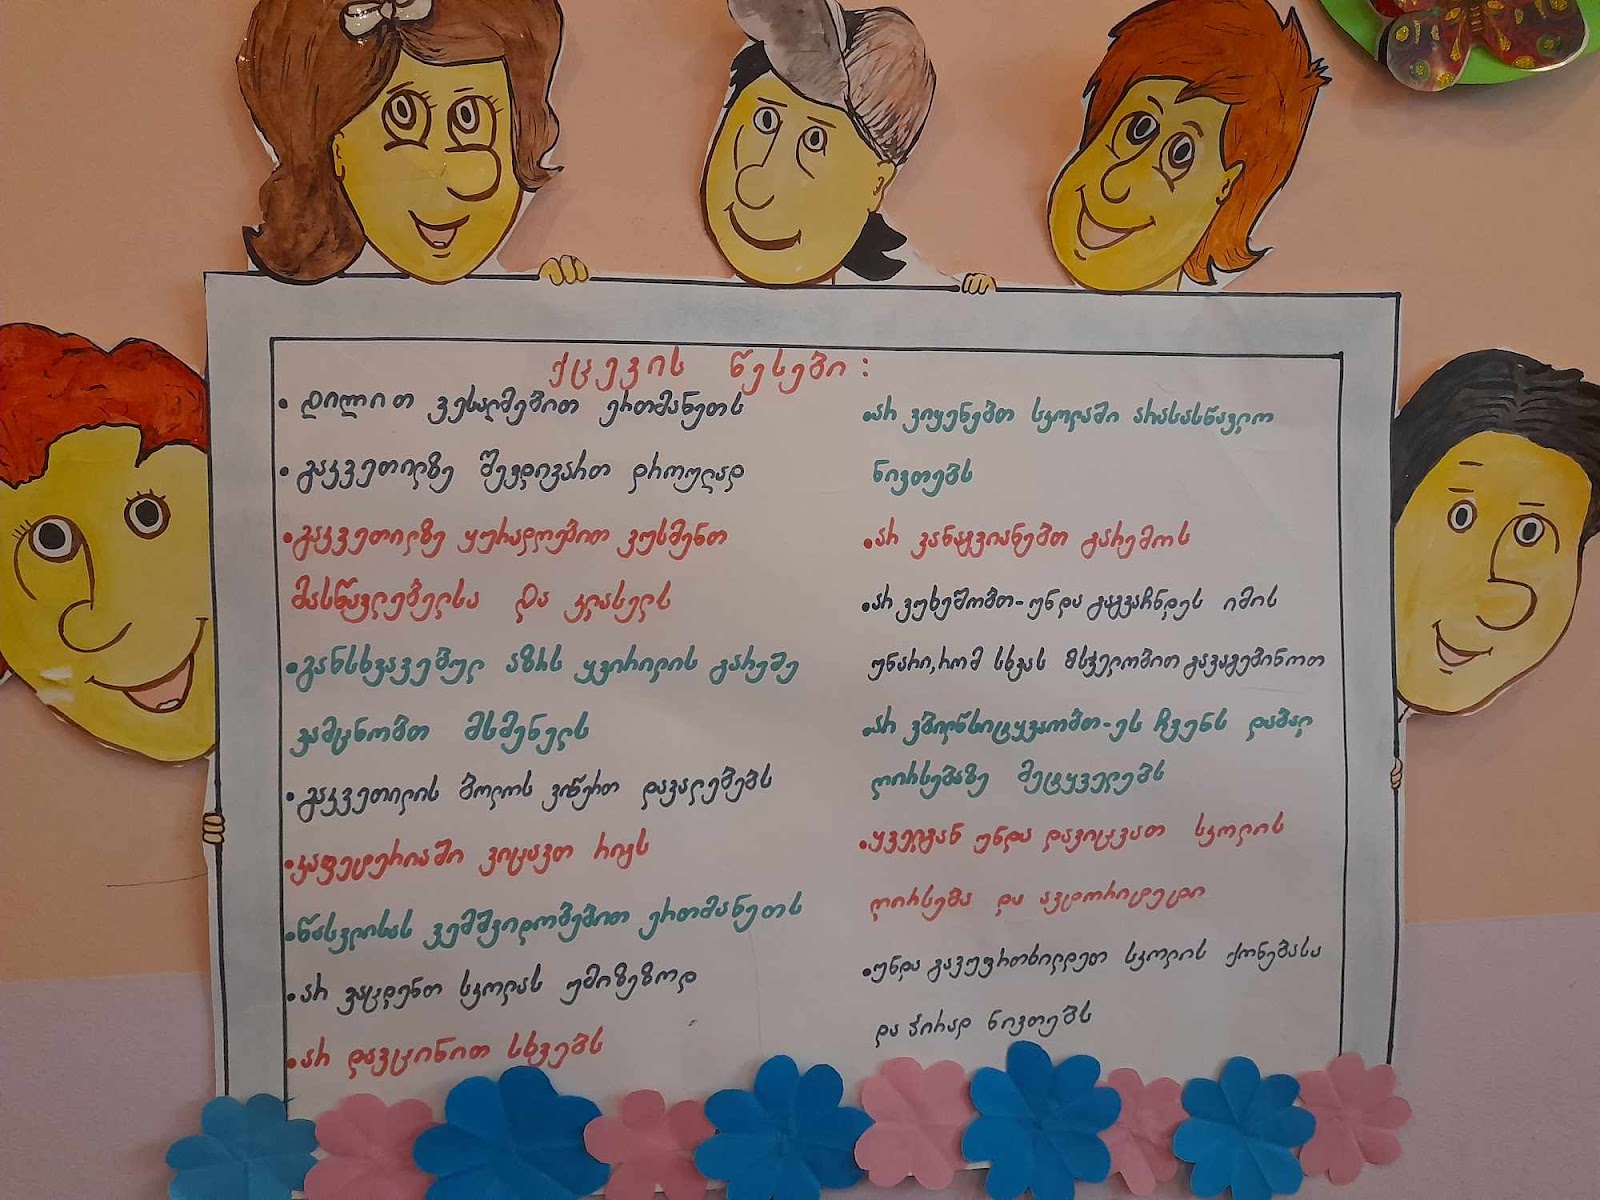 ქცევის წესები:
• დილით ვესალმებით ერთმანეთს
• გაკვეთილზე შევდივართ დროულად
• გაკვეთილზე ყურადღებით ვუსმენთ
მასწავლებელსა და კლასელს
• განსხვავებულ აზრს ყვირილის გარეშე
ვამცნობთ მსმენელს
• გაკვეთილის ბოლოს ვიწერთ დავალებებს
• კაფეტერიაში ვიცავთ რიგს
• წასვლისას ვემშვიდობებით ერთმანეთს
• არ ვაცდენთ სკოლას უმიზეზოდ
• არ დავცინით სხვებს
• არ ვიყენებთ სკოლაში არასასწავლო
ნივთებს
• არ ვანაგვიანებთ გარემოს
• არ ვუხეშობთ-უნდა გაგვაჩნდეს იმის
უნარი, რომ სხვას მსჯელობით გავაგებინოთ
• არ ვბილწსიტყვაობთ-ეს ჩვენს დაბალ
ღირსებაზე მეტყველებს
• ყველგან უნდა დავიცვათ სკოლის
ღირსება და ავტორიტეტი
• უნდა გავუფრთხილდეთ სკოლის ქონებასა
და პირად ნივთებს